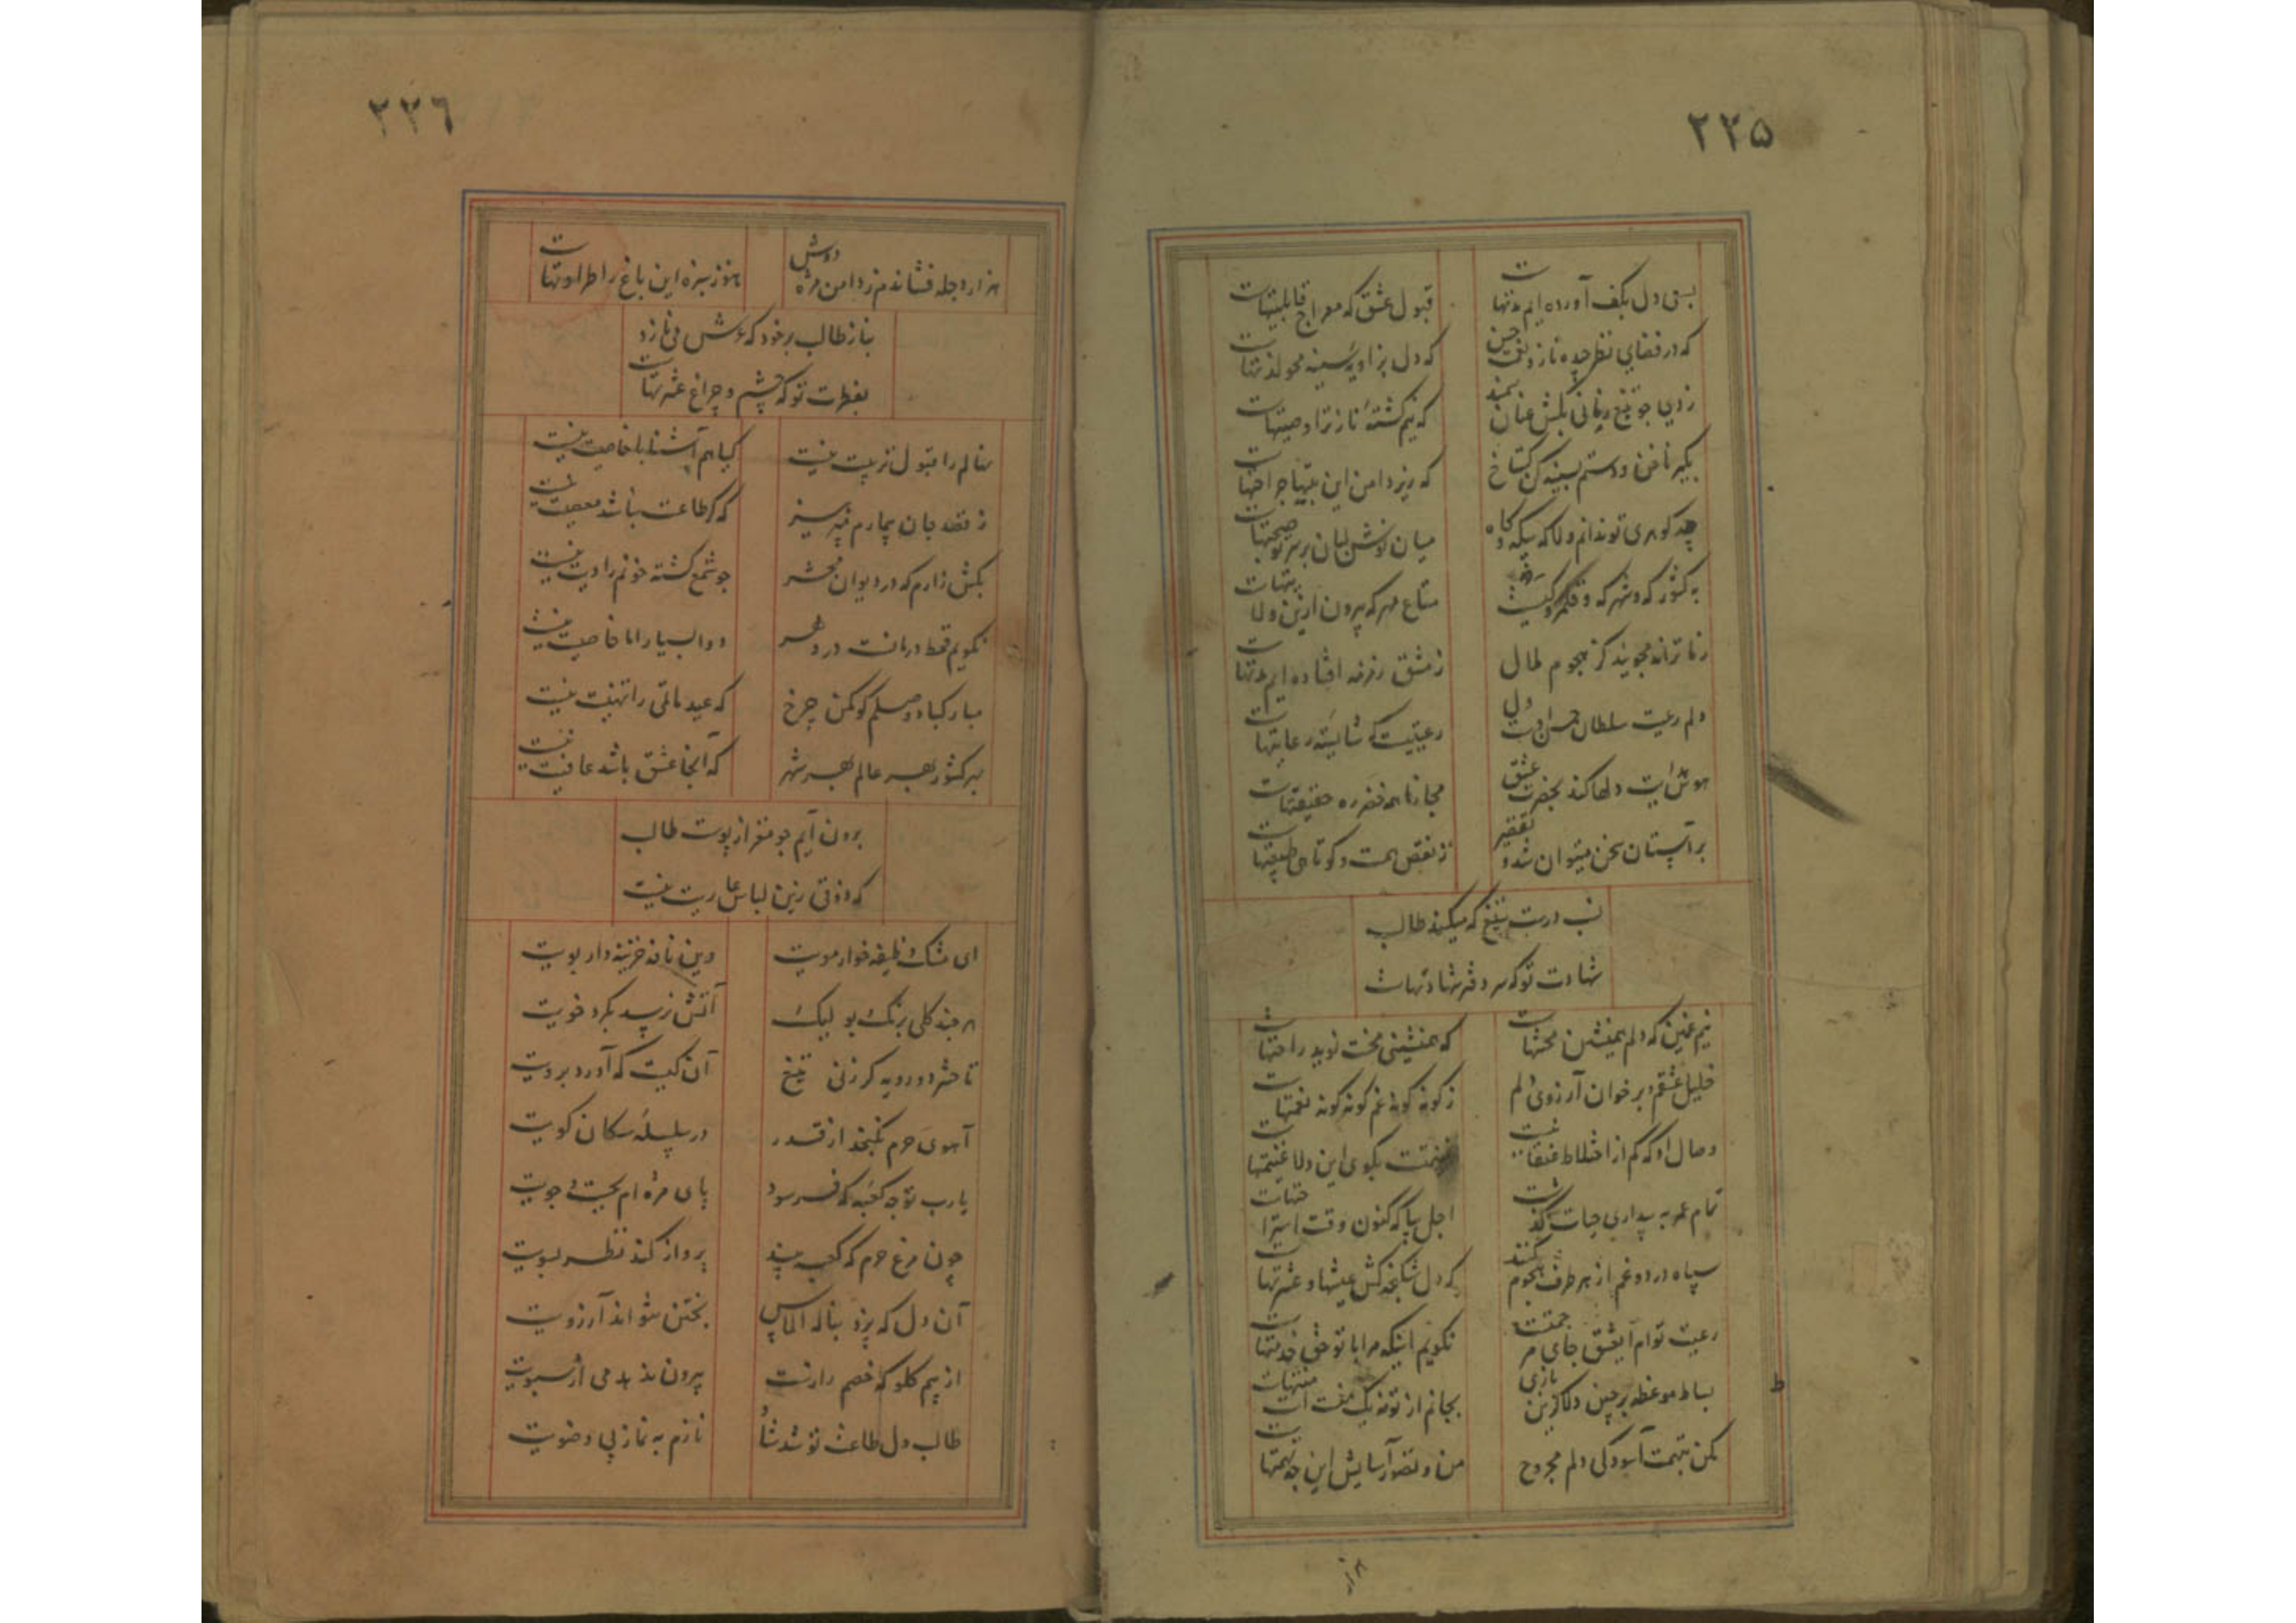 ۲۳۵
بسی دل بکف آورده ایم مدتهاست
قبول عشق که معراج قابلیتهاست
که در فضای نظر جلوه ناز و نعمت حسن
که دل بزاویه سینه محو لذتهاست
زدی چو تیغ زمانی بکش عنان سمند
که نیم کشته ناز ترا وصیتهاست
بگیر ناخن و دستم بسینه کن گستاخ
که زیر دامن این پنبها جراحتهاست
چه گوهری تو ندانم دلا که بیگه و گاه
میان نوش لبان بر سر تو صحبتهاست
به کشور که و شهر که و قلمرو کیست
متاع مهر که بیرون ازین ولایتهاست
زما ترانه مجویید کز هجوم ملال
ز مشق زمزمه افتاده ایم مدتهاست
دلم رعیت سلطان حسن اوست ولی
رعیتیست که شایسته رعایتهاست
هدایت دلها کند بحضرت عشق
مجازنا همه خضر ره حقیقتهاست
بر آستان سخن میتوان شدو تقصیر
ز نقص همت و کوتاهی طبیعتهاست
نسب درست بتیغ که میکند طالب
شهادت تو که سر دفتر شهادتهاست
نیم غمین که دلم همنشین محنتهاست
که همنشینی محنت نوید راحتهاست
خلیل عشقم و بر خوان آرزوی دلم
ز گونه گونه غم گونه گونه نعمتهاست
وصال او که کم از اختلاط عنقا نیست
غنیمتست بگوی این دلا غنیمتهاست
تمام عمر به بیداری حیات گذشت
اجل بیا که کنون وقت استراحتهاست
سپاه درد و غم از هر طرف هجوم کنند
که دل شکنجه کش عیشها و عشرتهاست
رعیت توام ایعشق جای مرحمتست
نگویم اینکه مرا با تو حق خدمتهاست
بساط موعظه بر چین دلا کزین بازی
بجانم از تو نه یک منت است منتهاست
مکن بتهمت آسودگی دلم مجروح
من و تصور آسایش این چه تهمتهاست
هزار
۲۳۶
هزار دجله فشاندم ز دامن مژه دوش
هنوز سبزه این باغ را طراوتهاست
بناز طالب بر خود که عرش می نازد
بفطرت تو که چشم و چراغ عشرتهاست
نهالم را قبول تربیت نیست
گیاهم آشنا با خاصیت نیست
ز قصد جان بیمارم نپرهیز
که گر طاعت نباشد معصیت نیست
بکش زارم که در دیوان محشر
چو شمع کشته خونم را دیت نیست
نگویم قحط درمانست در دهر
دوا بسیار اما خاصیت نیست
مبارکباد وصلم گو مکن چرخ
که عید ماتمی را تهنیت نیست
بهر کشور بهر عالم بهر شهر
که آنجا عشق باشد عافیت نیست
برون آیم چو مغز از پوست طالب
که ذوقی زین لباس عاریت نیست
ای مشک وظیفه خوار مویت
وین نافه خزینه دار بویت
هر چند گلی برنگ و بو لیک
آتش نرسد بگرد خویت
تا حشر دورویه گر زنی تیغ
آن کیست که آورد برویت
آهوی حرم نگنجد از قدر
در سلسله سگان کویت
یارب تو چه کعبه که فرسود
پای مژه ام بجست و جویت
چون مرغ حرم که کعبه بیند
پرواز کند نظر بسویت
آن دل که بزد بناله الماس
بختن نتواند آرزویت
از بیم گلو که خصم دارت
بیرون ندهد می از سبویت
طالب دل طاعت تو شد شاد
نازم به نماز بی وضویت